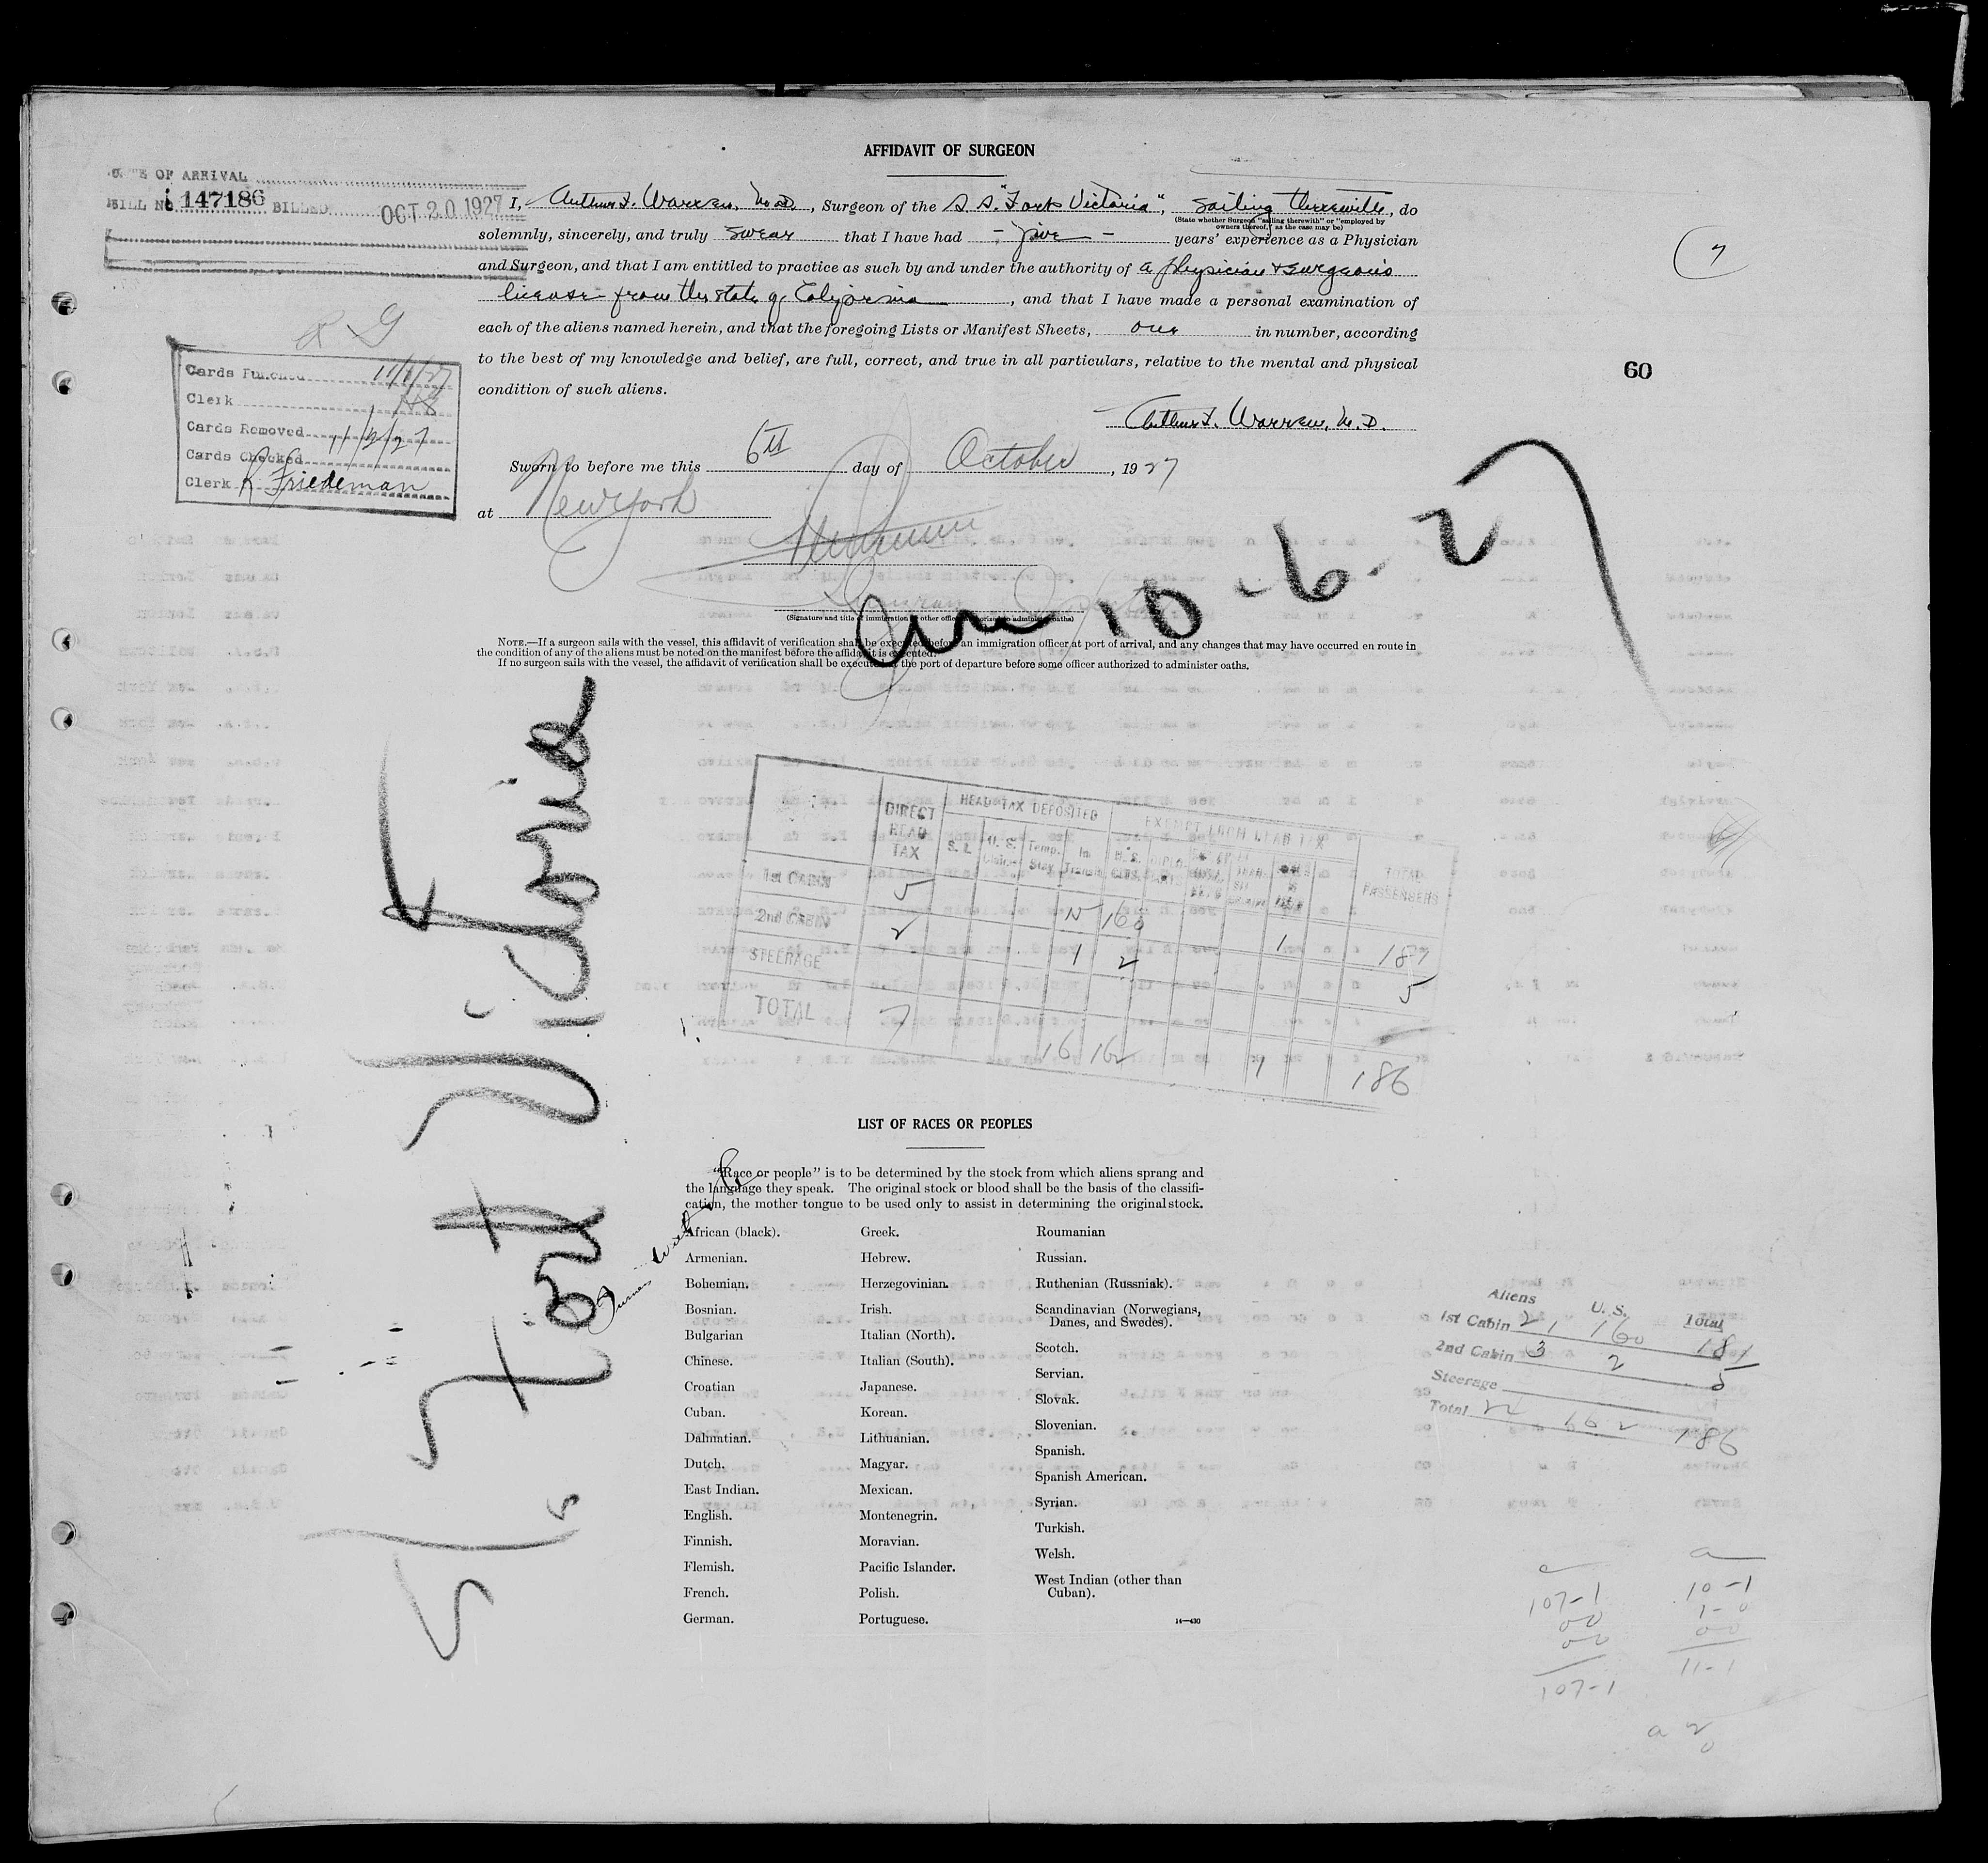 AFFIDAVIT OF SURGEON
DATE OF ARRIVAL
BILL No 147186 BILLED OCT 20 1927
I, Arthur F. Warren, M.D., Surgeon of the S.S. "Fort Victoria", sailing therewith, do
(State whether Surgeon "sailing therewith" or "employed by owners thereof," as the case may be)
solemnly, sincerely, and truly swear that I have had - five - years' experience as a Physician
and Surgeon, and that I am entitled to practice as such by and under the authority of a physician & surgeon's
license from the state of California, and that I have made a personal examination of
each of the aliens named herein, and that the foregoing Lists or Manifest Sheets, one in number, according
to the best of my knowledge and belief, are full, correct, and true in all particulars, relative to the mental and physical
condition of such aliens.
Arthur F. Warren, M.D.
7
60
Cards Punched 11/1/27
Clerk
Cards Removed 11/2/27
Cards Checked
Clerk R Friedeman
Sworn to before me this 6th day of October, 1927
at New York
(Signature and title of immigration or other officer authorized to administer oaths)
Arr 10-6-27
NOTE.—If a surgeon sails with the vessel, this affidavit of verification shall be executed before an immigration officer at port of arrival, and any changes that may have occurred en route in
the condition of any of the aliens must be noted on the manifest before the affidavit is executed.
If no surgeon sails with the vessel, the affidavit of verification shall be executed at the port of departure before some officer authorized to administer oaths.
S.S. Fort Victoria
DIRECT HEAD TAX
HEAD TAX DEPOSITED
EXEMPT FROM HEAD TAX
TOTAL PASSENGERS
S. I. U. S. Temp. Stay In Transit U. S.
1st CABIN 5 15 160 1 181
2nd CABIN 2 1 2 5
STEERAGE
TOTAL 7 16 162 1 186
LIST OF RACES OR PEOPLES
"Race or people" is to be determined by the stock from which aliens sprang and
the language they speak. The original stock or blood shall be the basis of the classifi-
cation, the mother tongue to be used only to assist in determining the original stock.
African (black).
Armenian.
Bohemian.
Bosnian.
Bulgarian
Chinese.
Croatian
Cuban.
Dalmatian.
Dutch.
East Indian.
English.
Finnish.
Flemish.
French.
German.
Greek.
Hebrew.
Herzegovinian.
Irish.
Italian (North).
Italian (South).
Japanese.
Korean.
Lithuanian.
Magyar.
Mexican.
Montenegrin.
Moravian.
Pacific Islander.
Polish.
Portuguese.
Roumanian
Russian.
Ruthenian (Russniak).
Scandinavian (Norwegians,
Danes, and Swedes).
Scotch.
Servian.
Slovak.
Slovenian.
Spanish.
Spanish American.
Syrian.
Turkish.
Welsh.
West Indian (other than
Cuban).
14—430
Aliens U. S. Total
1st Cabin 21 160 181
2nd Cabin 3 2 5
Steerage
Total 24 162 186
107-1
00
00
107-1
a
10-1
1-0
00
11-1